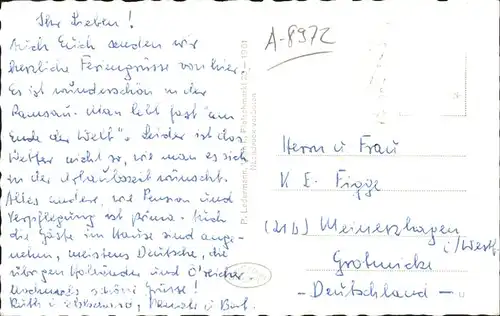 Ihr Lieben!
Auch Euch senden wir
herzliche Feriengrüsse von hier.
Es ist wunderschön in der
Ramsau. Man lebt fast "am
Ende der Welt". Leider ist das
Wetter nicht so, wie man es sich
in der Urlaubszeit wünscht.
Alles andere, wie Pension und
Verpflegung ist prima. Auch
die Gäste im Hause sind ange-
nehm, meistens Deutsche, die
übrigen Holländer und Ö'reicher.
Nochmals schöne Grüsse!
Ruth
A-8972
Herrn u Frau
K E. Figge
(21b) Meinerzhagen
i/Westf.
Grotmicke
- Deutschland -